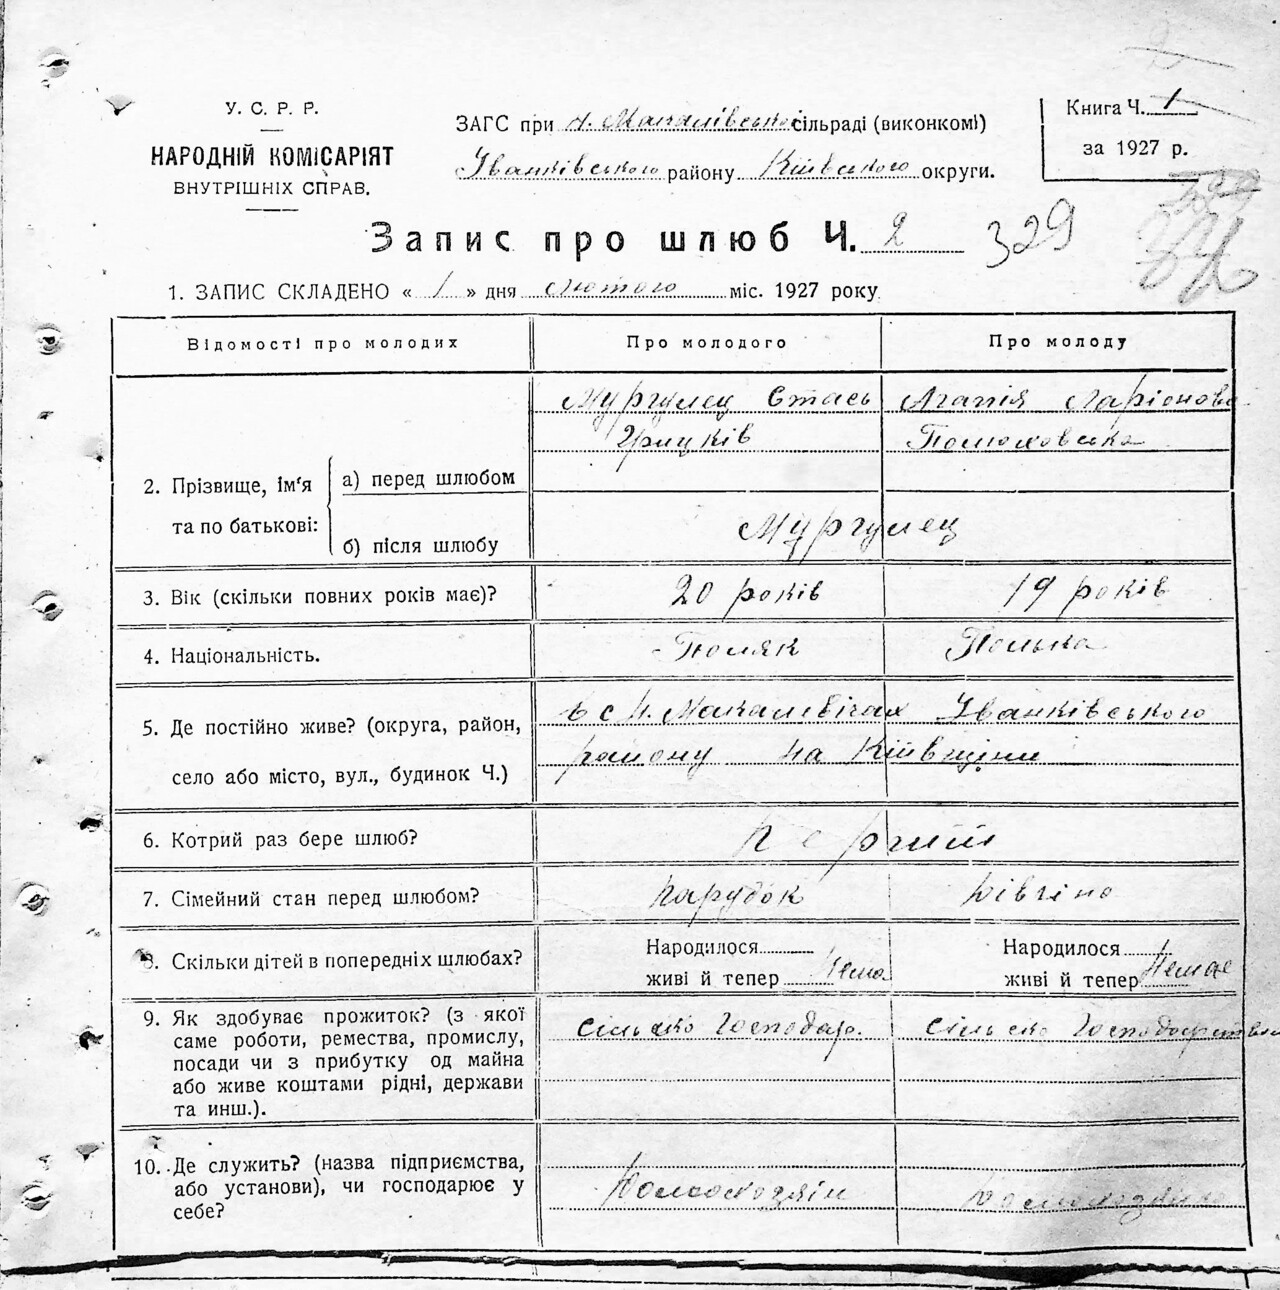 У. С. Р. Р.
НАРОДНІЙ КОМІСАРІЯТ
ВНУТРІШНІХ СПРАВ.
ЗАГС при Н. Макалівській сільраді (виконкомі)
Іванківського району Київського округи.
Книга Ч. 1
за 1927 р.
Запис про шлюб Ч. 2 329
1. ЗАПИС СКЛАДЕНО « 1 » дня лютого міс. 1927 року
Відомості про молодих Про молодого Про молоду
Мургулец Стась Агапія Ларіонова
Грицків
2. Прізвище, ім'я та по батькові:
а) перед шлюбом
б) після шлюбу
Мургулец
3. Вік (скільки повних років має)? 20 років 19 років
4. Національність. Поляк Полька
5. Де постійно живе? (округа, район, село або місто, вул., будинок Ч.)
в с Н. Макалевічах Іванківського
району на Київщіни
6. Котрий раз бере шлюб? Перший
7. Сімейний стан перед шлюбом? Парубок Дівчіна
8. Скільки дітей в попередніх шлюбах?
Народилося
живі й тепер Нема
Народилося
живі й тепер Немає
9. Як здобуває прожиток? (з якої
саме роботи, ремества, промислу,
посади чи з прибутку од майна
або живе коштами рідні, держави
та инш.).
Сільско Господар. Сільско Господарством
10. Де служить? (назва підприємства,
або установи), чи господарює у
себе?
Домохозяін Домохозяйка